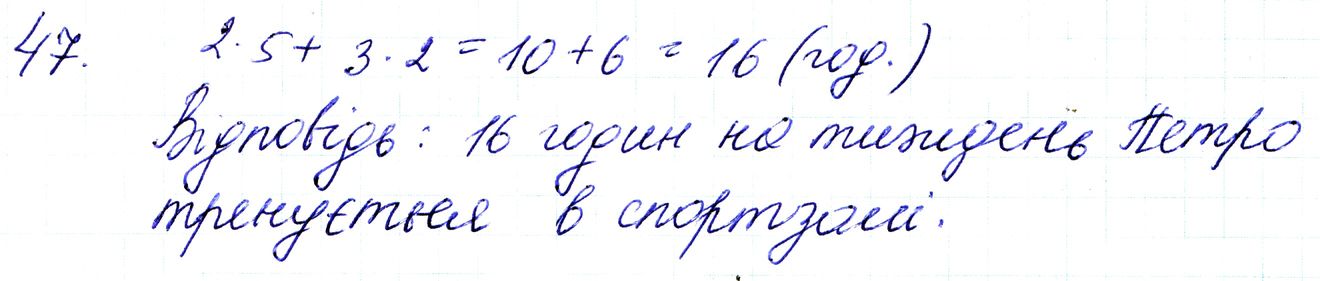 47. 2·5+ 3·2 = 10+6 = 16 (год.)
Відповідь: 16 годин на тиждень Петро
тренується в спортзалі.